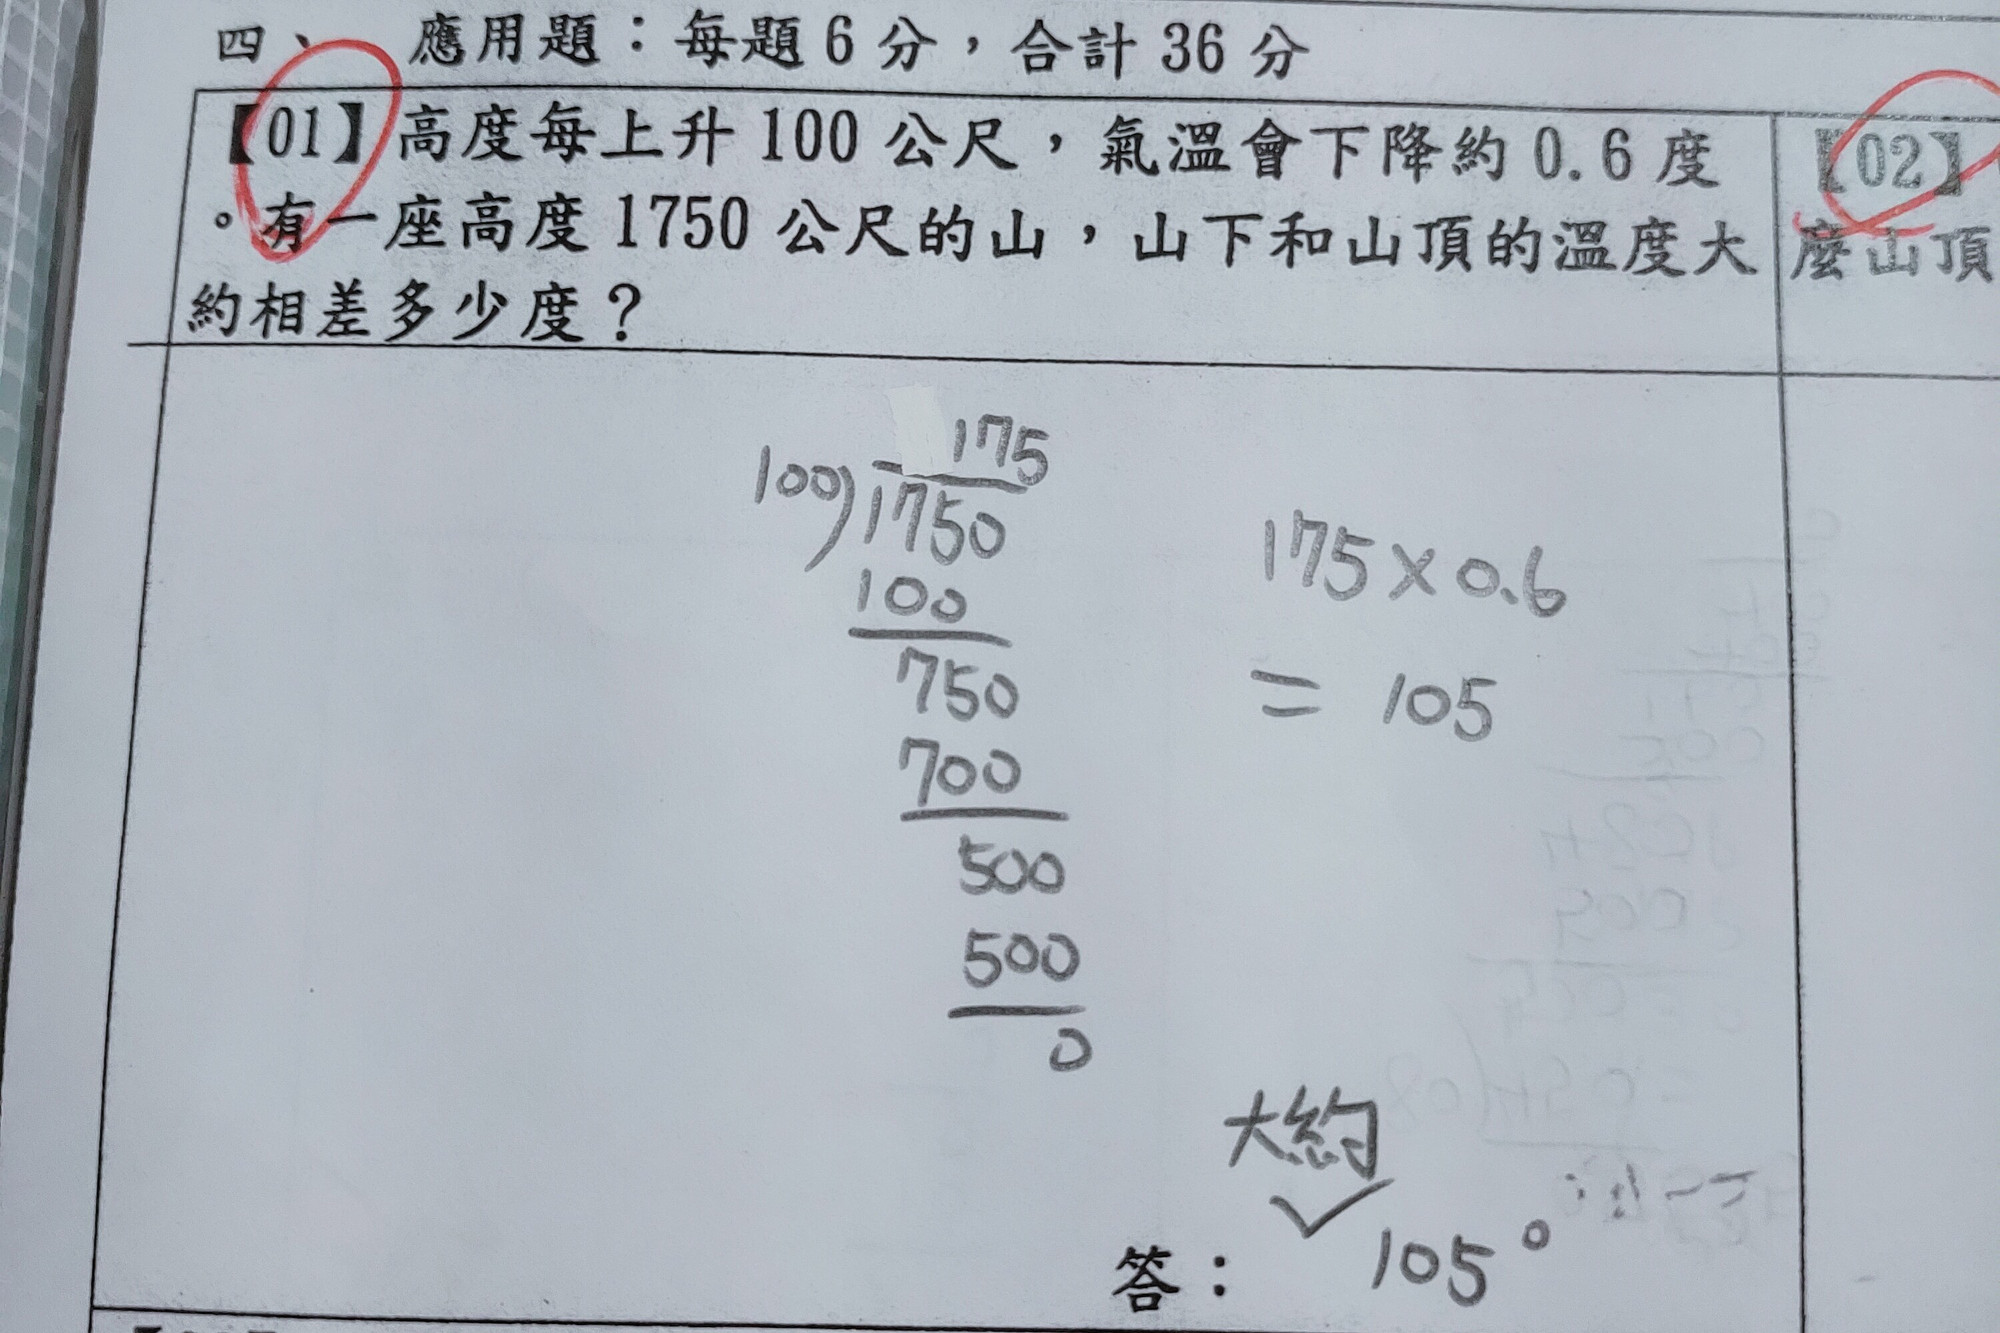 四、 應用題：每題6分，合計36分
【01】高度每上升100公尺，氣溫會下降約0.6度
。有一座高度1750公尺的山，山下和山頂的溫度大
約相差多少度？
【02】
麼山頂
175
100)1750
100
750
700
500
500
0
175×0.6
= 105
大約
答： 105°